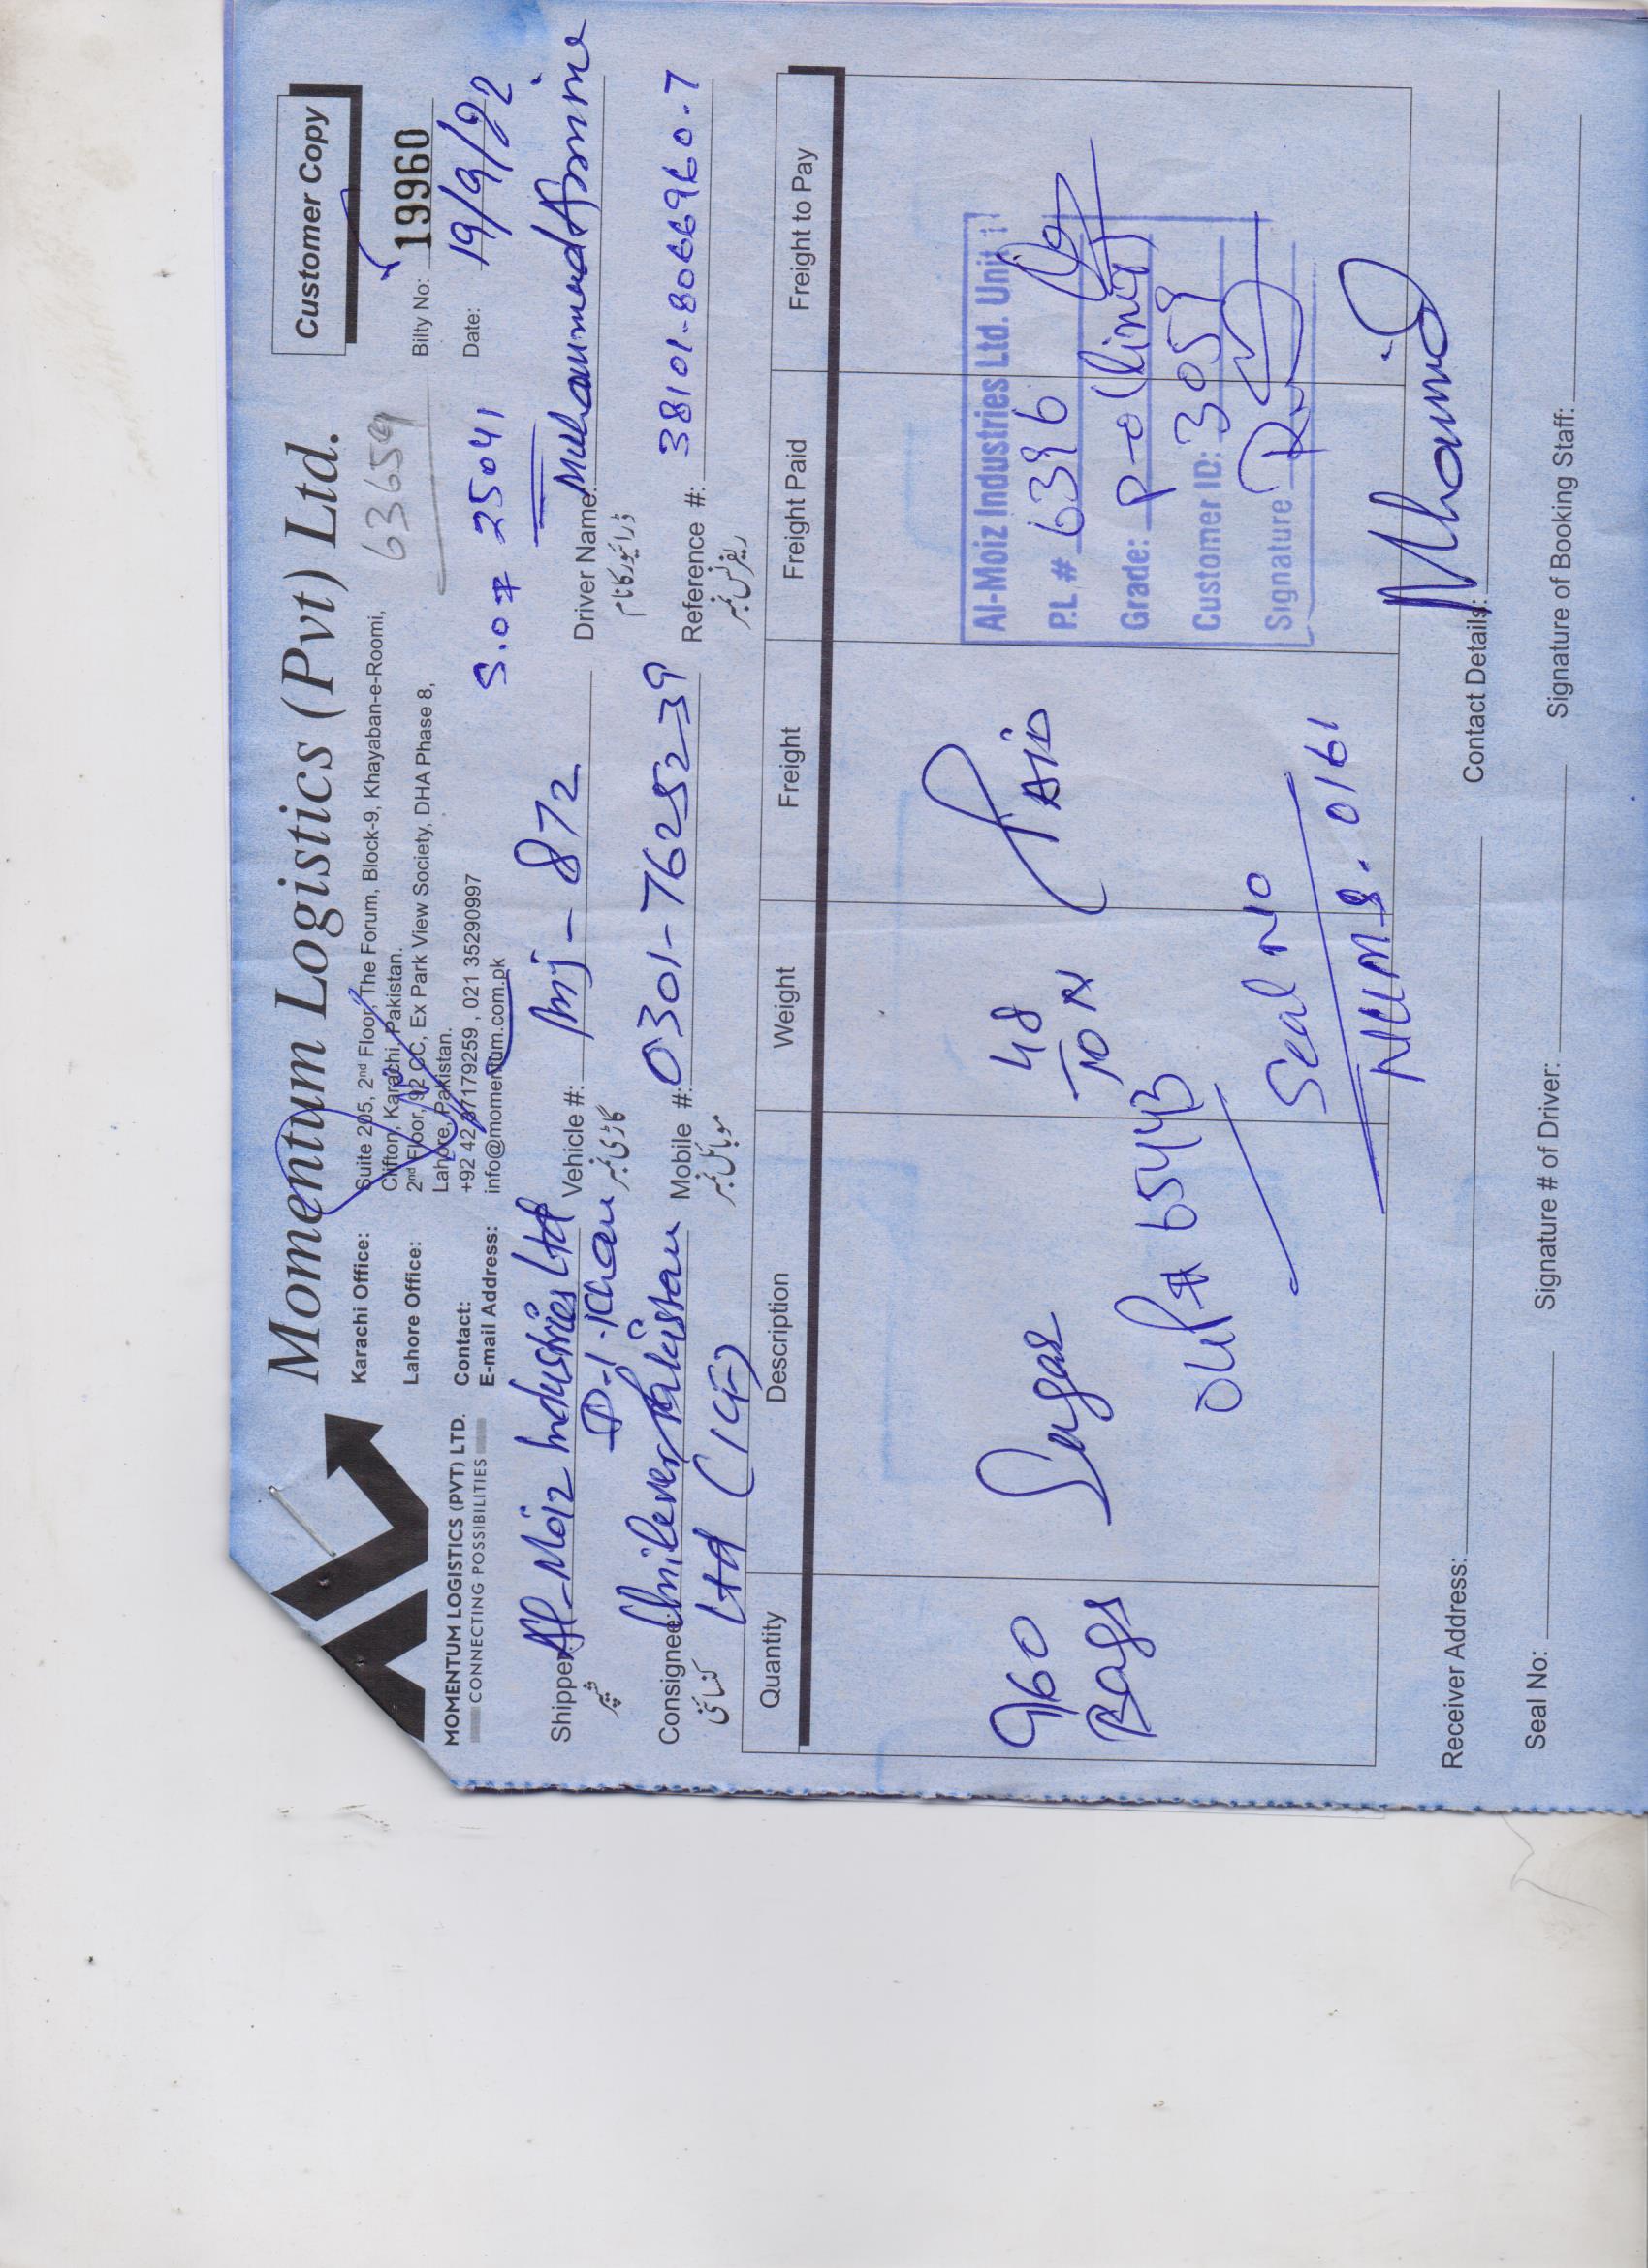 Customer Copy
Momentum Logistics (Pvt) Ltd.
MOMENTUM LOGISTICS (PVT) LTD.
CONNECTING POSSIBILITIES
Karachi Office: Suite 205, 2nd Floor, The Forum, Block-9, Khayaban-e-Roomi,
Clifton, Karachi, Pakistan.
Lahore Office: 2nd Floor, 92 CC, Ex Park View Society, DHA Phase 8,
Lahore, Pakistan.
Contact: +92 42 37179259 , 021 35290997
E-mail Address: info@momentum.com.pk
63659
Bilty No: 19960
Date: 19/9/22
S.O# 25041
Shipper: Al-Moiz Industries Ltd
D-I-Khan
شپر
Vehicle #:
872
گاڑی نمبر
Driver Name: Muhammad Amine
ڈرائیور کا نام
Consignee: Unilever Pakistan
Ltd
کنسائنی
Mobile #: 0301-7625239
موبائل نمبر
Reference #: 38101-8066960-7
ریفرنس نمبر
Quantity Description Weight Freight Freight Paid Freight to Pay
960
Bags
Sugar
65443
48
TON
PAID
Al-Moiz Industries Ltd. Unit
P.L # 6396
Grade:
Customer ID: 3059
Signature
Seal No
0161
Receiver Address: Contact Details:
Seal No: Signature # of Driver: Signature of Booking Staff: